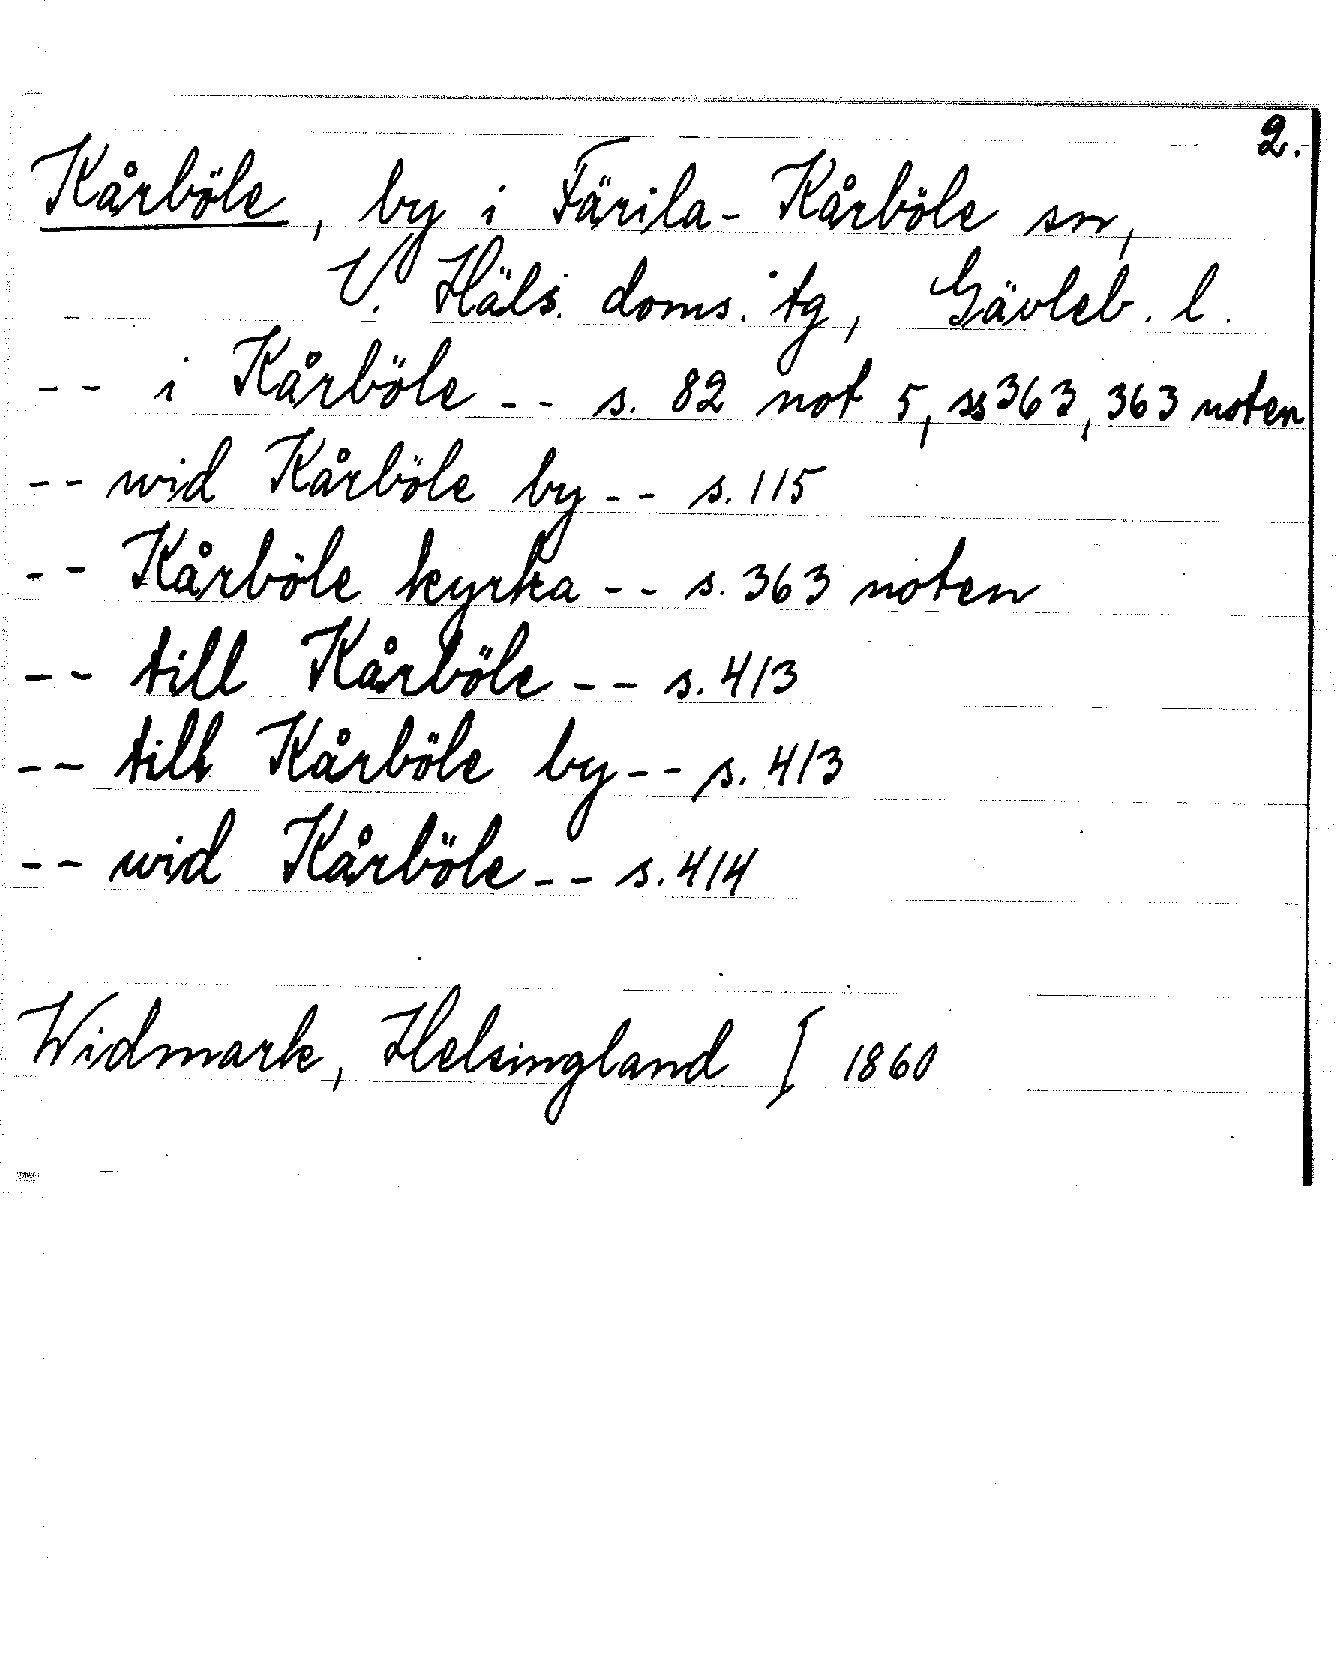 2.
Kårböle, by i Färila-Kårböle sn,
V. Häls. doms. tg, Gävleb. l.
-- i Kårböle -- s. 82 not 5, ss 363, 363 noten
-- wid Kårböle by -- s. 115
-- Kårböle kyrka -- s. 363 noten
-- till Kårböle -- s. 413
-- till Kårböle by -- s. 413
-- wid Kårböle -- s. 414
Widmark, Helsingland [ 1860